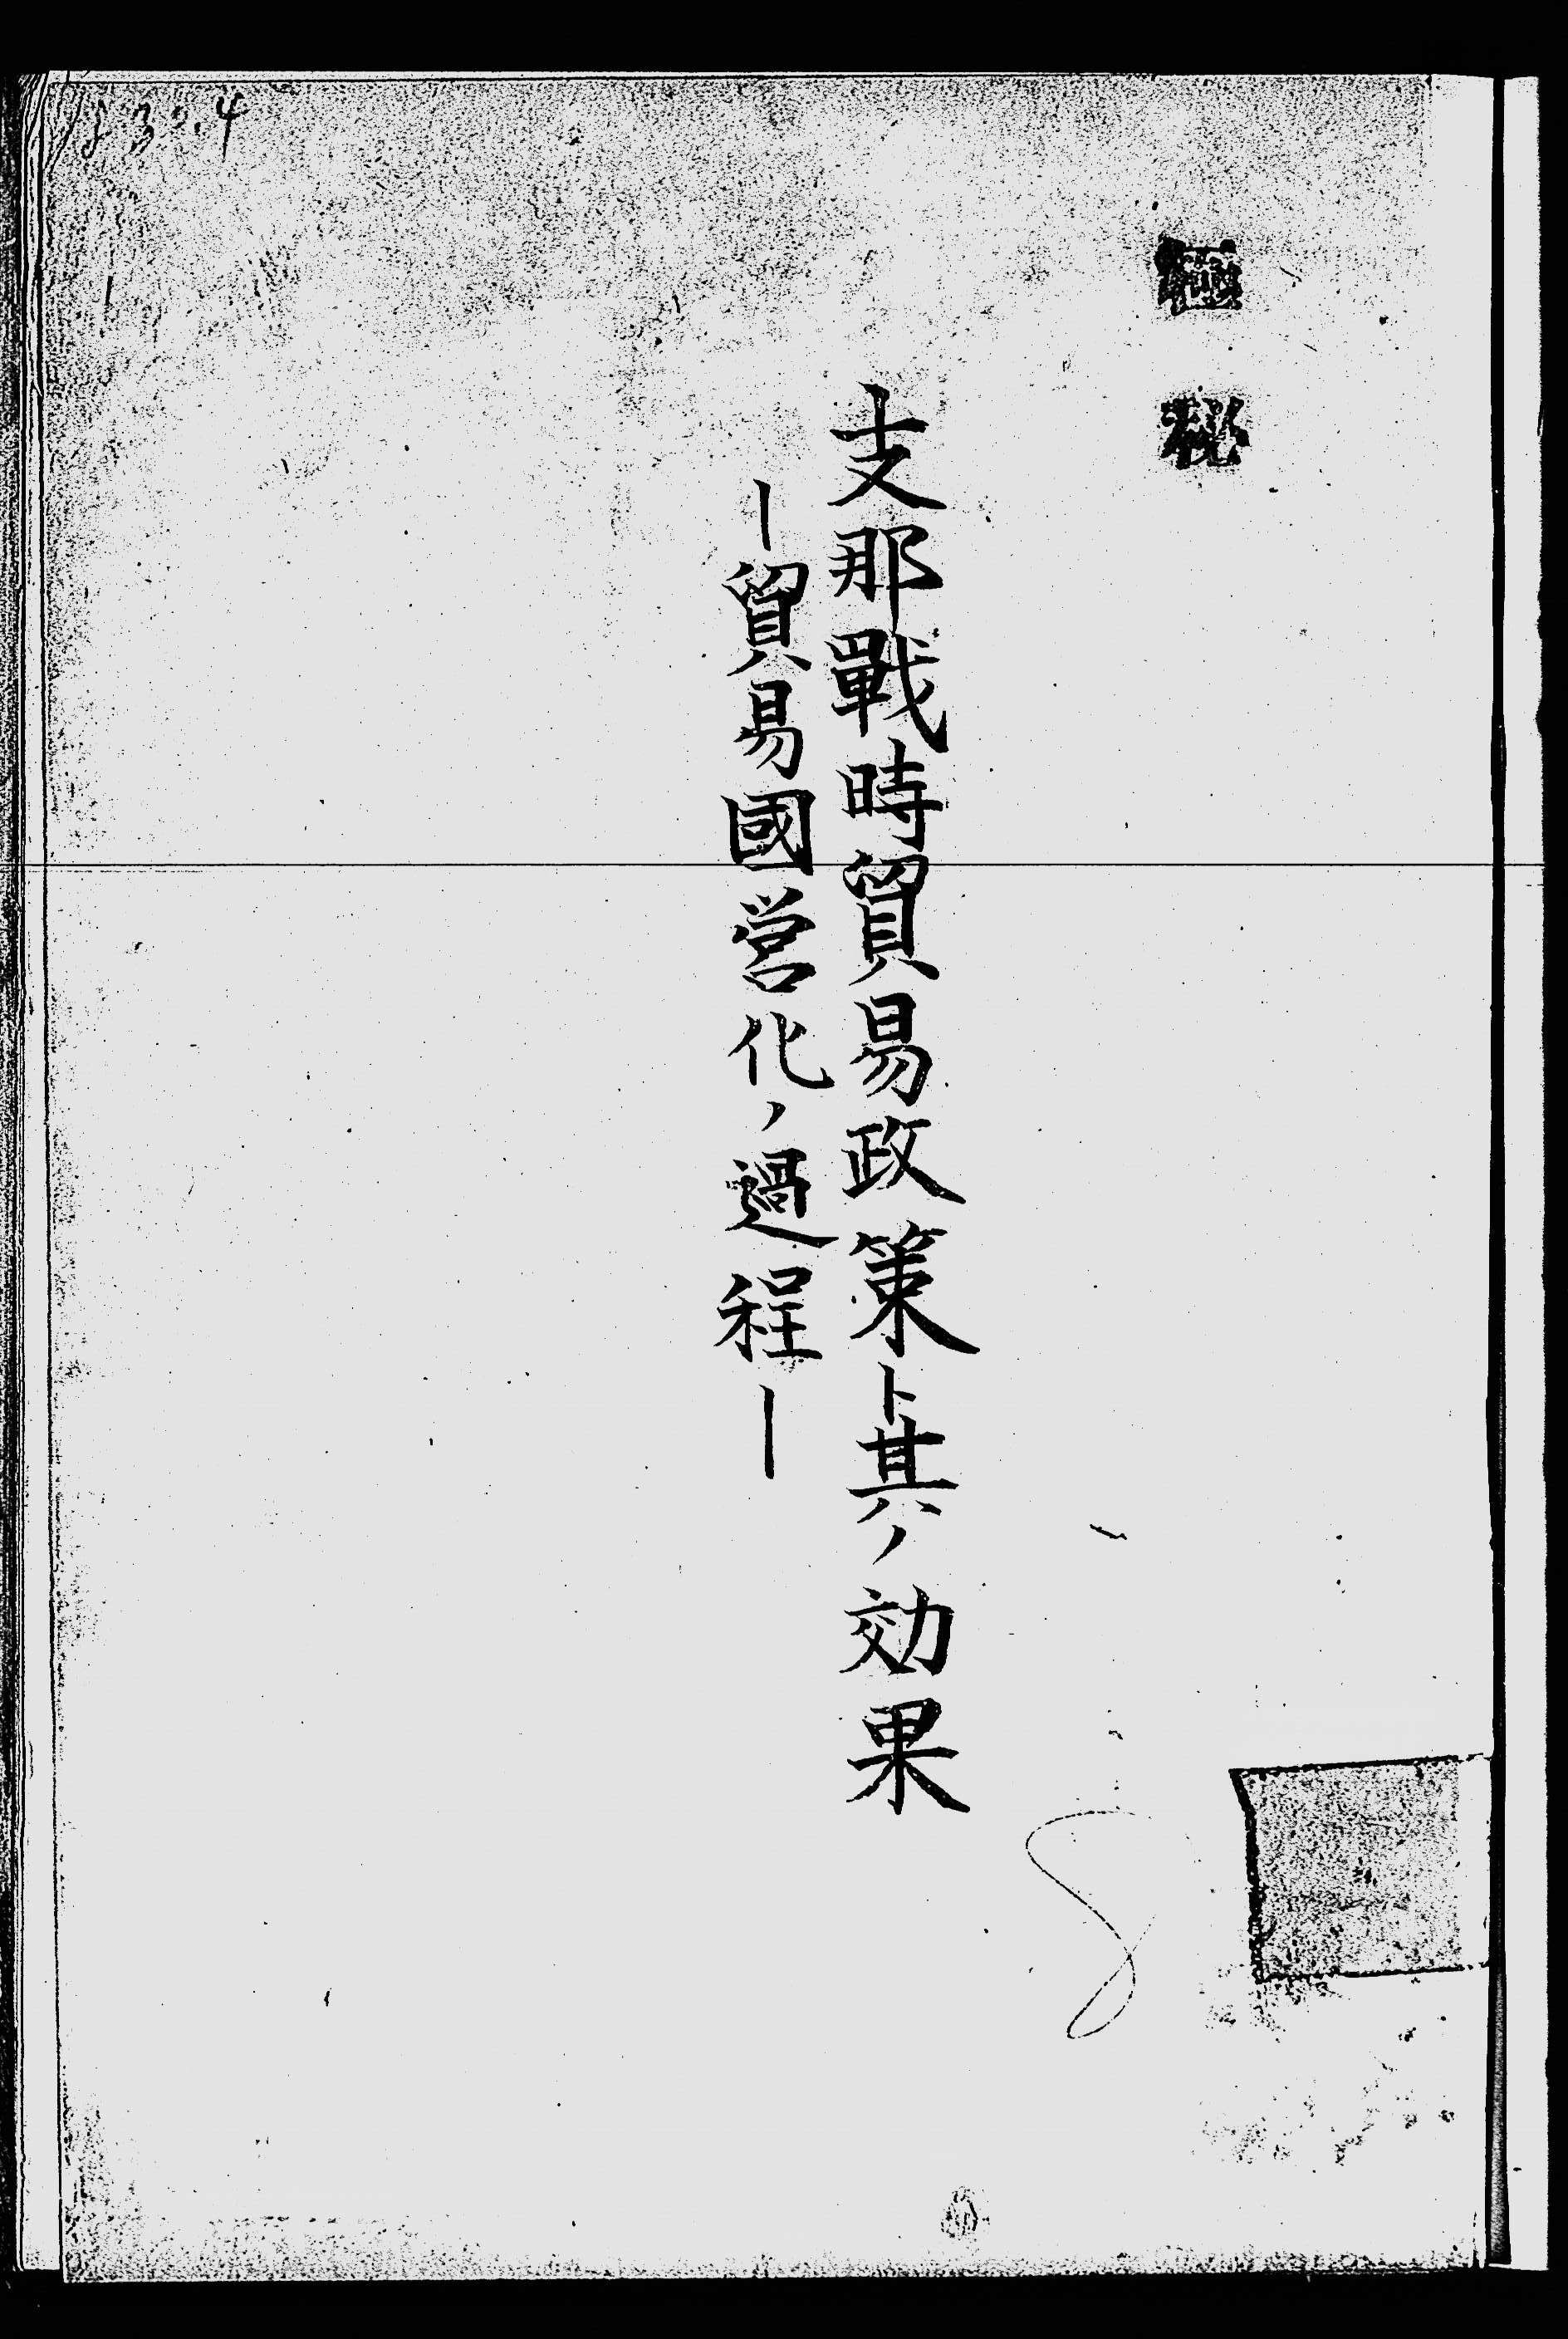 極秘
支那戰時貿易政策ト其ノ効果
―貿易國営化ノ過程―